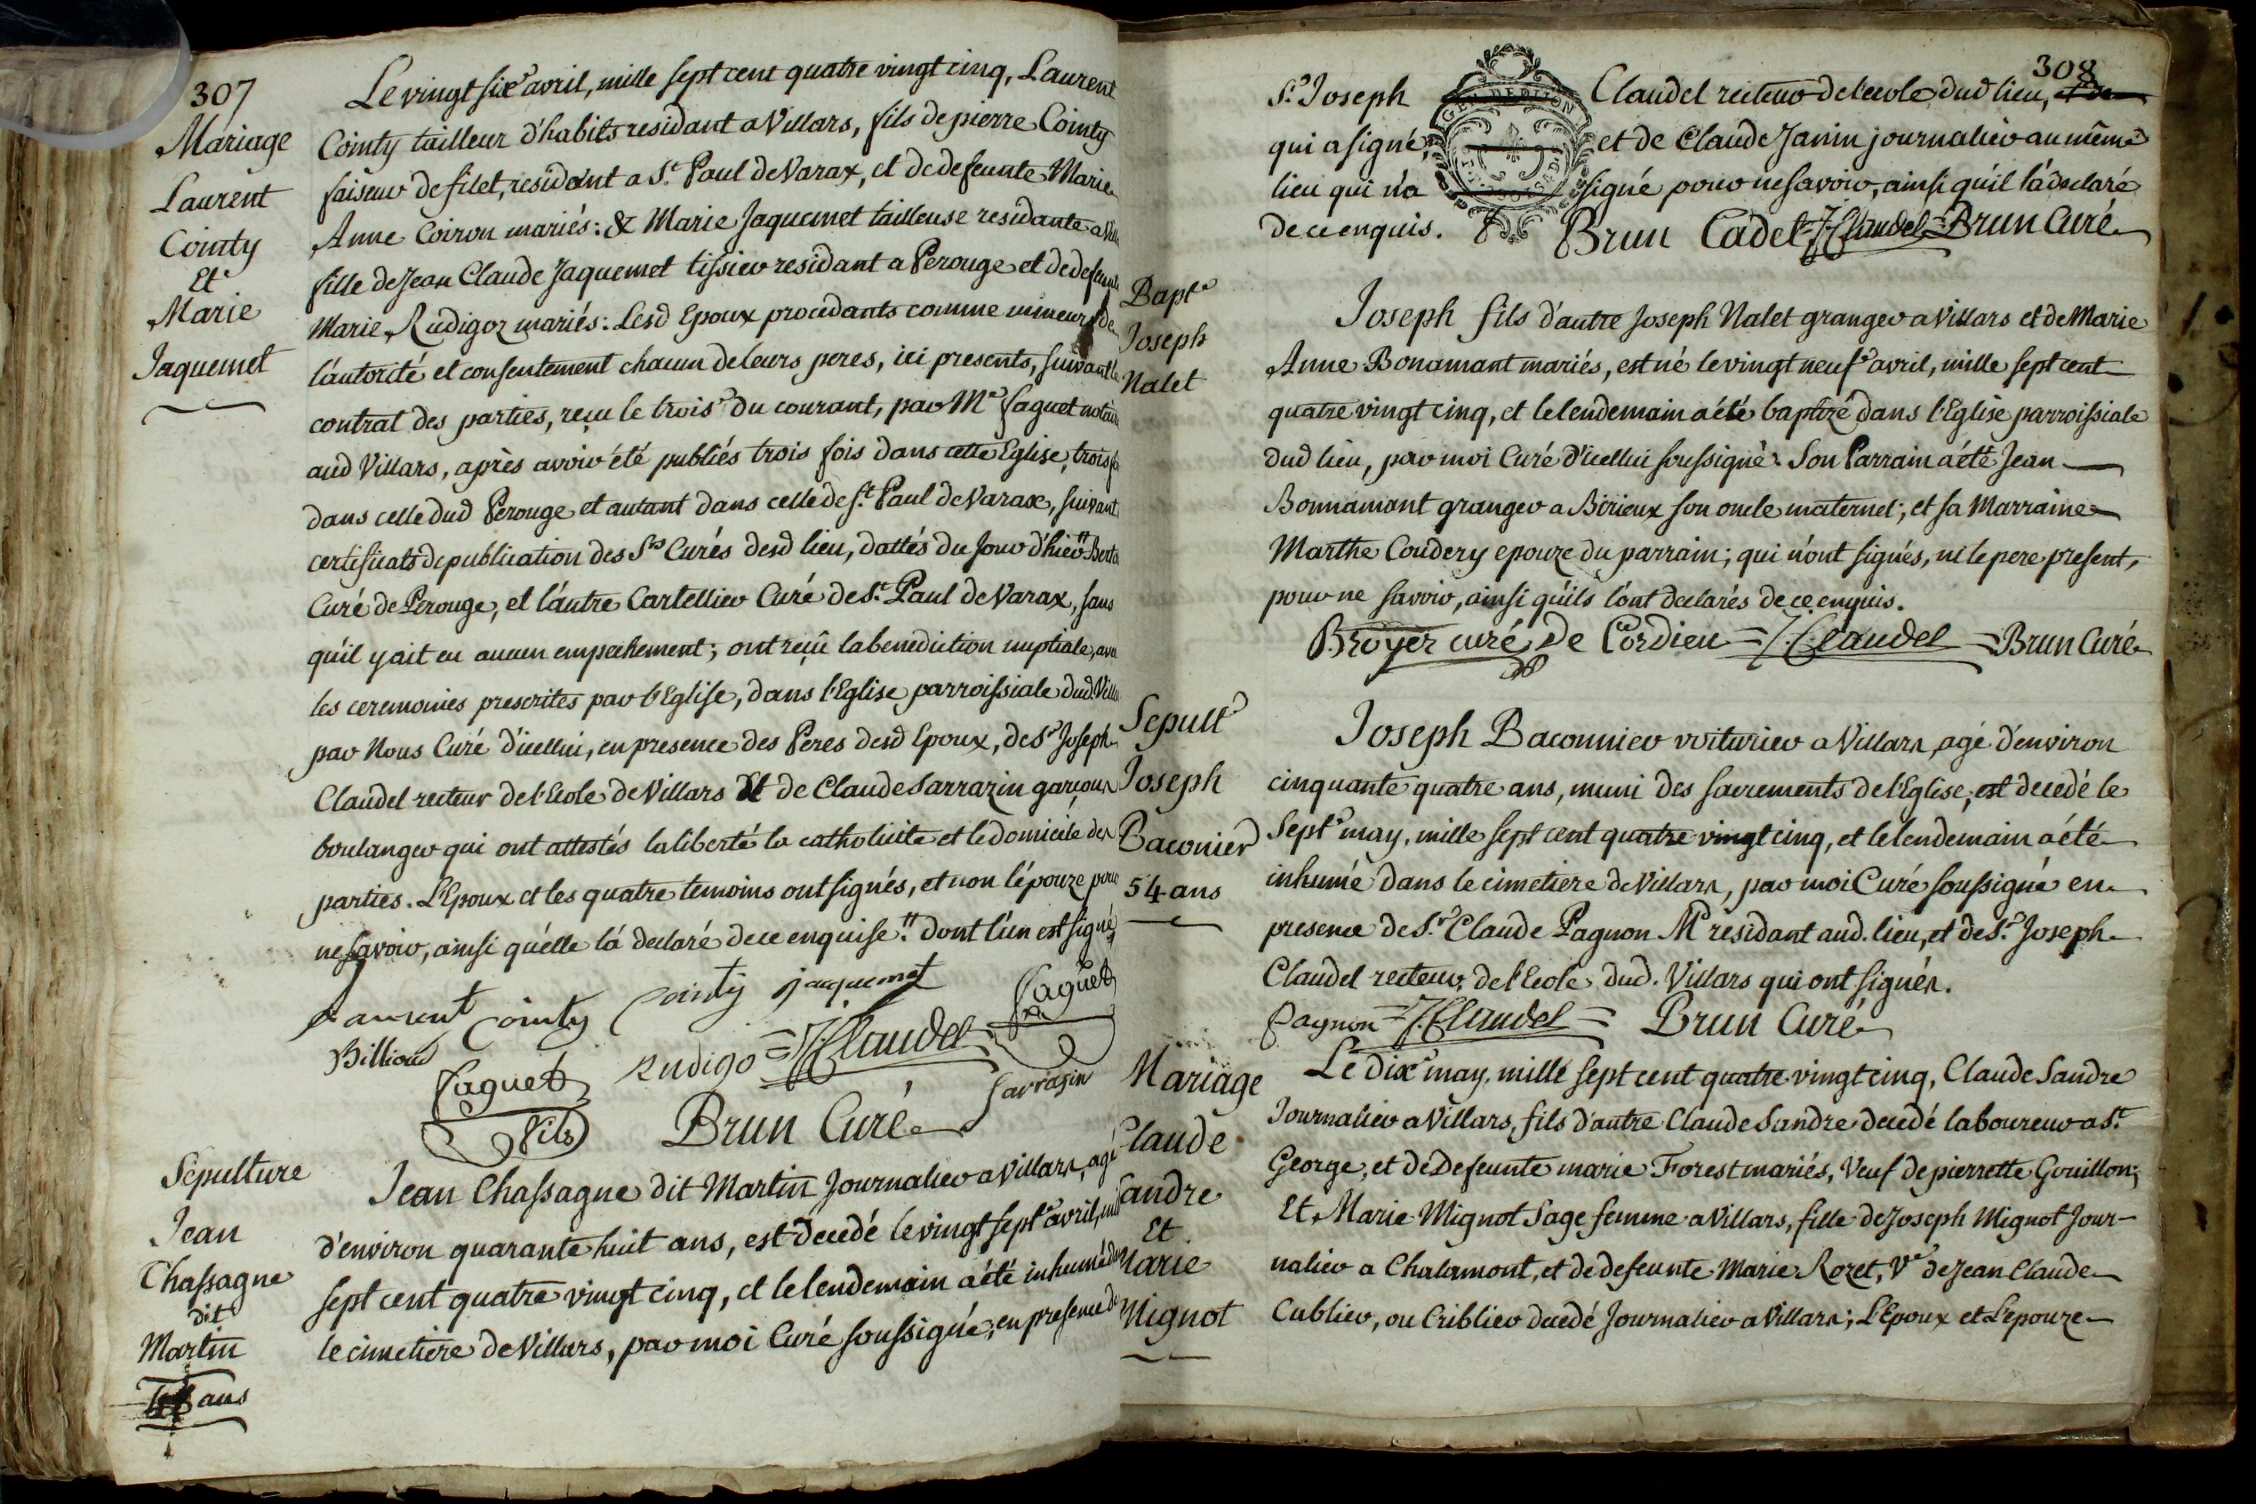 307
Mariage
Laurent
Cointy
Et
Marie
Jaquemet
Le vingt sixe avril, mille sept cent quatre vingt cinq, Laurent
Cointy tailleur d'habits residant a Villars, fils de pierre Cointy
faiseur de filet, residant a St. Paul de Varax, et de defeunte Marie
Anne Coiron mariés: & Marie Jaquemet tailleuse residante a Vill
fille de Jean Claude Jaquemet tissier residant a Perouge et de defeunte
Marie Rudigoz mariés: Lesd Epoux procedants comme mineurs de
l'autorité et consentement chacun de leurs peres, ici presents, suivant le
contrat des parties, reçu le troise du courant, par Me faguet notaire
aud Villars, après avoir été publiés trois fois dans cette Eglise, trois fo
dans celle dud Perouge et autant dans celle de St. Paul de Varax, suivant
certificats de publication des Srs Curés desd lieu, dattés du Jour d'hier Berta
Curé de Perouge, et l'autre Cartellier Curé de St. Paul de Varax, sans
qu'il y ait eu aucun empechement; ont reçû la benediction nuptiale, ave
les ceremonies prescrites par l'Eglise, dans l'Eglise parroissiale dud Villa
par Nous Curé d'icellui, en presence des Peres desd Epoux, de Sr Joseph
Claudel recteur de l'Ecole de Villars Et de Claude Sarrazin garçon
boulanger qui ont attestés la liberté la catholicite et le domicile des
parties. L'Epoux et les quatre temoins ont signés, et non l'épouze pour
ne savoir, ainsi qu'elle l'a declaré de ce enquise. dont l'un est signé
Laurent Cointy Cointy jaquemet faguet
Billioud Rudigo = J. Claudel
faguet fils Brun Curé Sarrazin
Sepulture
Jean
Chassagne
dit
Martin
48 ans
Jean Chassagne dit Martin Journalier a Villars, agé
d'environ quarante huit ans, est décedé le vingt septe avril, mil
sept cent quatre vingt cinq, et le lendemain a été inhumé dan
le cimetiere de Villars, par moi Curé soussigné, en presence de
308
St. Joseph Claudel recteur de l'ecole dud lieu,
qui a signé, et de Claude Janin journalier au même
lieu qui n'a signé pour ne savoir, ainsi qu'il l'a declaré
de ce enquis. Brun Cadet = J. Claudel = Brun Curé
GEN DE DIJON
Bapte
Joseph
Nalet
Joseph fils d'autre Joseph Nalet granger a Villars et de Marie
Anne Bonamant mariés, est né le vingt neufe avril, mille sept cent
quatre vingt cinq, et le lendemain a été baptizé dans l'Eglise parroissiale
dud lieu, par moi Curé d'icellui soussigné. Son Parrain a été Jean
Bonnamant granger a Birieux son oncle maternel, et sa Marraine
Marthe Coudery epouze du parrain; qui n'ont signés, ni le pere present,
pour ne savoir, ainsi qu'ils l'ont declarés de ce enquis.
Broyer curé de Cordieu = J. Claudel = Brun Curé
Sepult
Joseph
Baconier
54 ans
Joseph Baconnier voiturier a Villars, agé d'environ
cinquante quatre ans, muni des sacrements de l'Eglise, est decedé le
septe may, mille sept cent quatre vingt cinq, et le lendemain a été
inhumé dans le cimetiere de Villars, par moi Curé soussigné en
presence de Sr. Claude Pagnon Md residant aud. lieu, et de Sr. Joseph
Claudel recteur de l'Ecole dud. Villars qui ont signés.
Pagnon = J. Claudel = Brun Curé
Mariage
Claude
Sandre
Et
Marie
Mignot
Le dixe may, mille sept cent quatre vingt cinq, Claude Sandre
Journalier a Villars, fils d'autre Claude Sandre decedé laboureur a St.
George, et de Defeunte marie Forest mariés, Veuf de pierrette Gouillon;
Et Marie Mignot Sage femme a Villars, fille de Joseph Mignot Jour-
nalier a Chalamont, et de defeunte Marie Rozet, Ve de Jean Claude
Cublier, ou Criblier decedé Journalier a Villars; L'Epoux et L'epouze